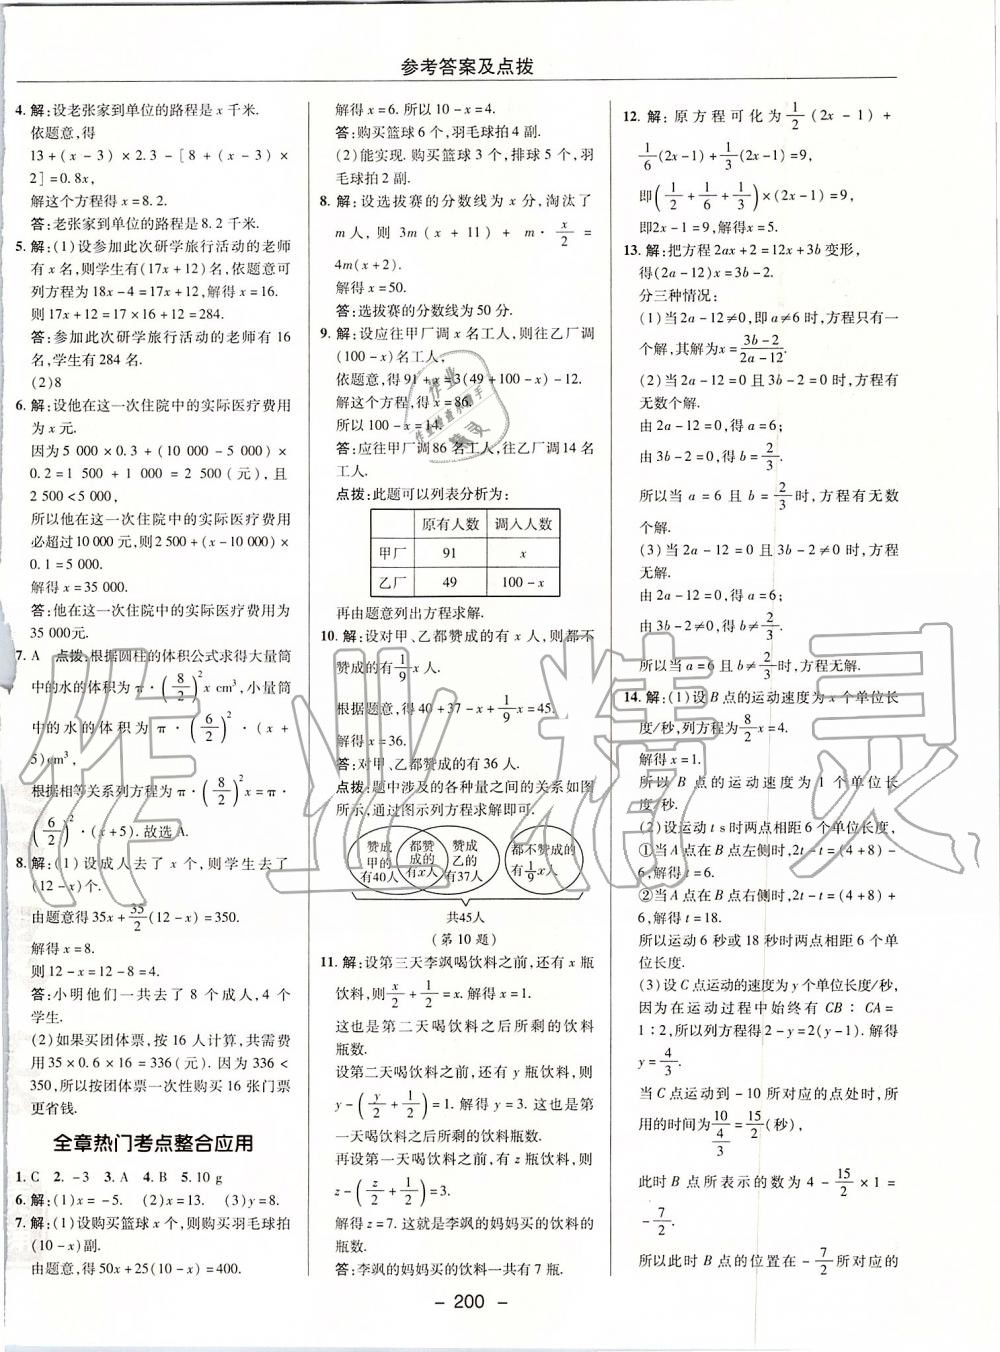 参考答案及点拨
4. 解:设老张家到单位的路程是 x 千米.
依题意,得
13+(x-3)×2.3-[8+(x-3)×
2]=0.8x,
解这个方程得 x=8.2.
答:老张家到单位的路程是 8.2 千米.
5. 解:(1)设参加此次研学旅行活动的老师
有 x 名,则学生有(17x+12)名,依题意可
列方程为 18x-4=17x+12,解得 x=16.
则 17x+12=17×16+12=284.
答:参加此次研学旅行活动的老师有 16
名,学生有 284 名.
(2)8
6. 解:设他在这一次住院中的实际医疗费用
为 x 元.
因为 5 000×0.3+(10 000-5 000)×
0.2=1 500+1 000=2 500(元),且
2 500<5 000,
所以他在这一次住院中的实际医疗费用
必超过 10 000 元,则 2 500+(x-10 000)×
0.1=5 000.
解得 x=35 000.
答:他在这一次住院中的实际医疗费用为
35 000元.
7. A 点拨:根据圆柱的体积公式求得大量筒
中的水的体积为 π·(8/2)²x cm³,小量筒
中的水的体积为 π·(6/2)²·(x+
5)cm³,
根据相等关系列方程为 π·(8/2)²x=π·
(6/2)²·(x+5).故选 A.
8. 解:(1)设成人去了 x 个,则学生去了
(12-x)个.
由题意得 35x+35/2(12-x)=350.
解得 x=8.
则 12-x=12-8=4.
答:小明他们一共去了 8 个成人,4 个
学生.
(2)如果买团体票,按 16 人计算,共需费
用 35×0.6×16=336(元).因为 336<
350,所以按团体票一次性购买 16 张门票
更省钱.
全章热门考点整合应用
1. C 2. -3 3. A 4. B 5. 10 g
6. 解:(1)x=-5. (2)x=13. (3)y=8.
7. 解:(1)设购买篮球 x 个,则购买羽毛球拍
(10-x)副.
由题意,得 50x+25(10-x)=400.
解得 x=6. 所以 10-x=4.
答:购买篮球 6 个,羽毛球拍 4 副.
(2)能实现. 购买篮球 3 个,排球 5 个,羽
毛球拍 2 副.
8. 解:设选拔赛的分数线为 x 分,淘汰了
m 人,则 3m(x+11)+m·x/2=
4m(x+2).
解得 x=50.
答:选拔赛的分数线为 50 分.
9. 解:设应往甲厂调 x 名工人,则往乙厂调
(100-x)名工人,
依题意,得 91+x=3(49+100-x)-12.
解这个方程,得 x=86.
所以 100-x=14.
答:应往甲厂调 86 名工人,往乙厂调 14 名
工人.
点拨:此题可以列表分析为:
原有人数 调入人数
甲厂 91 x
乙厂 49 100-x
再由题意列出方程求解.
10. 解:设对甲、乙都赞成的有 x 人,则都不
赞成的有1/9x 人.
根据题意,得 40+37-x+1/9x=45.
解得 x=36.
答:对甲、乙都赞成的有 36 人.
点拨:题中涉及的各种量之间的关系如图
所示,通过图示列方程求解即可.
赞成甲的有40人 都赞成的有x人 赞成乙的有37人 都不赞成的有1/9x人
共45人
(第 10 题)
11. 解:设第三天李飒喝饮料之前,还有 x 瓶
饮料,则x/2+1/2=x. 解得 x=1.
这也是第二天喝饮料之后所剩的饮料
瓶数.
设第二天喝饮料之前,还有 y 瓶饮料,则
y-(y/2+1/2)=1. 解得 y=3. 这也是第
一天喝饮料之后所剩的饮料瓶数.
再设第一天喝饮料之前,有 z 瓶饮料,则
z-(z/2+1/2)=3.
解得 z=7. 这就是李飒的妈妈买的饮料
的瓶数.
答:李飒的妈妈买的饮料一共有 7 瓶.
12. 解:原方程可化为1/2(2x-1)+
1/6(2x-1)+1/3(2x-1)=9,
即(1/2+1/6+1/3)×(2x-1)=9,
即2x-1=9,解得x=5.
13. 解:把方程 2ax+2=12x+3b 变形,
得(2a-12)x=3b-2.
分三种情况:
(1)当 2a-12≠0,即 a≠6 时,方程只有一
个解,其解为x=(3b-2)/(2a-12).
(2)当 2a-12=0 且 3b-2=0 时,方程有
无数个解.
由 2a-12=0,得 a=6;
由 3b-2=0,得 b=2/3.
所以当 a=6 且 b=2/3时,方程有无数
个解.
(3)当 2a-12=0 且 3b-2≠0 时,方程
无解.
由 2a-12=0,得 a=6;
由 3b-2≠0,得 b≠2/3.
所以当 a=6 且 b≠2/3时,方程无解.
14. 解:(1)设 B 点的运动速度为 x 个单位长
度/秒,列方程为8/2x=4.
解得 x=1.
所以 B 点的运动速度为 1 个单位长
度/秒.
(2)设运动 t s时两点相距 6 个单位长度,
①当 A 点在 B 点左侧时,2t-t=(4+8)-
6,解得 t=6.
②当 A 点在 B 点右侧时,2t-t=(4+8)+
6,解得 t=18.
所以运动 6 秒或 18 秒时两点相距 6 个单
位长度.
(3)设 C 点的运动速度为 y 个单位长度/秒,
因为在运动过程中始终有 CB∶CA=
1∶2,所以列方程得 2-y=2(y-1). 解得
y=4/3.
当 C 点运动到-10 所对应的点处时,所
用的时间为10/(4/3)=15/2(秒),
此时 B 点所表示的数为 4-15/2×1=
-7/2.
所以此时 B 点的位置在-7/2所对应的
- 200 -
作业精灵
作业
作业检查小助手
精灵